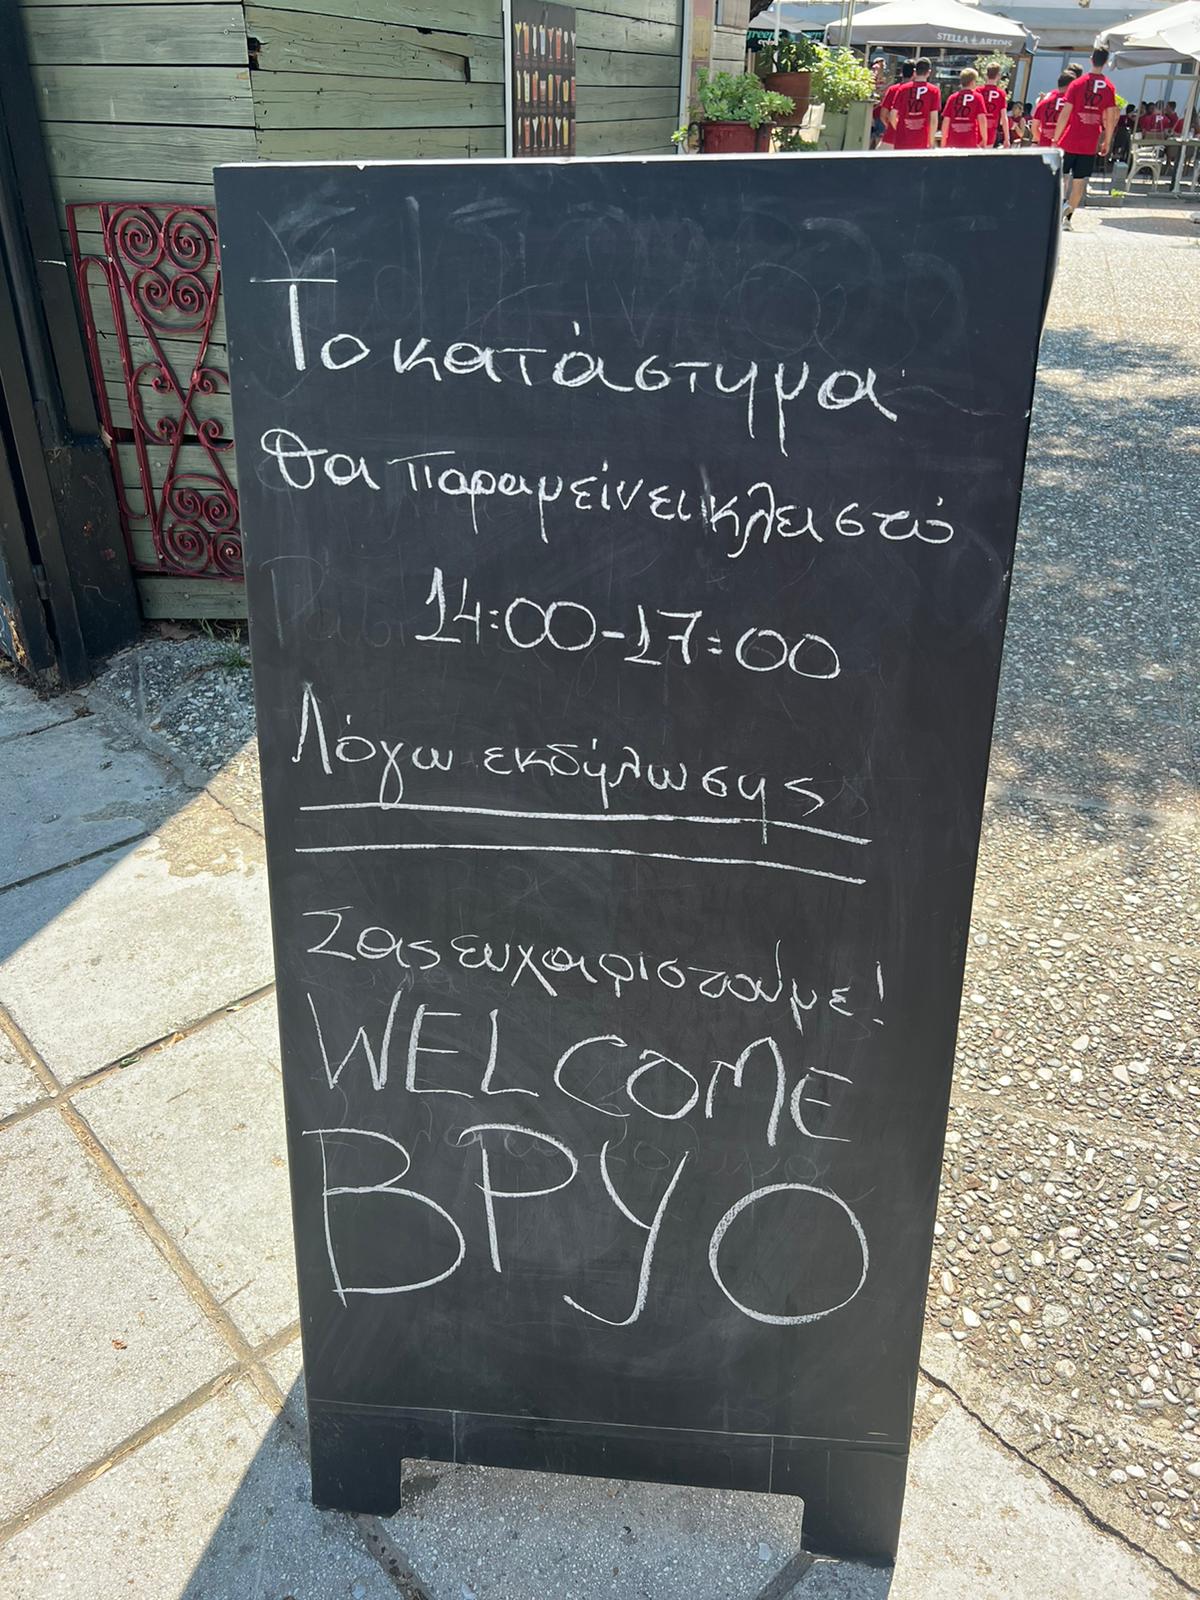 STELLA ARTOIS
Το κατάστημα
θα παραμείνει κλειστό
14:00-17:00
Λόγω εκδήλωσης
Σας ευχαριστούμε!
WELCOME
BPYO